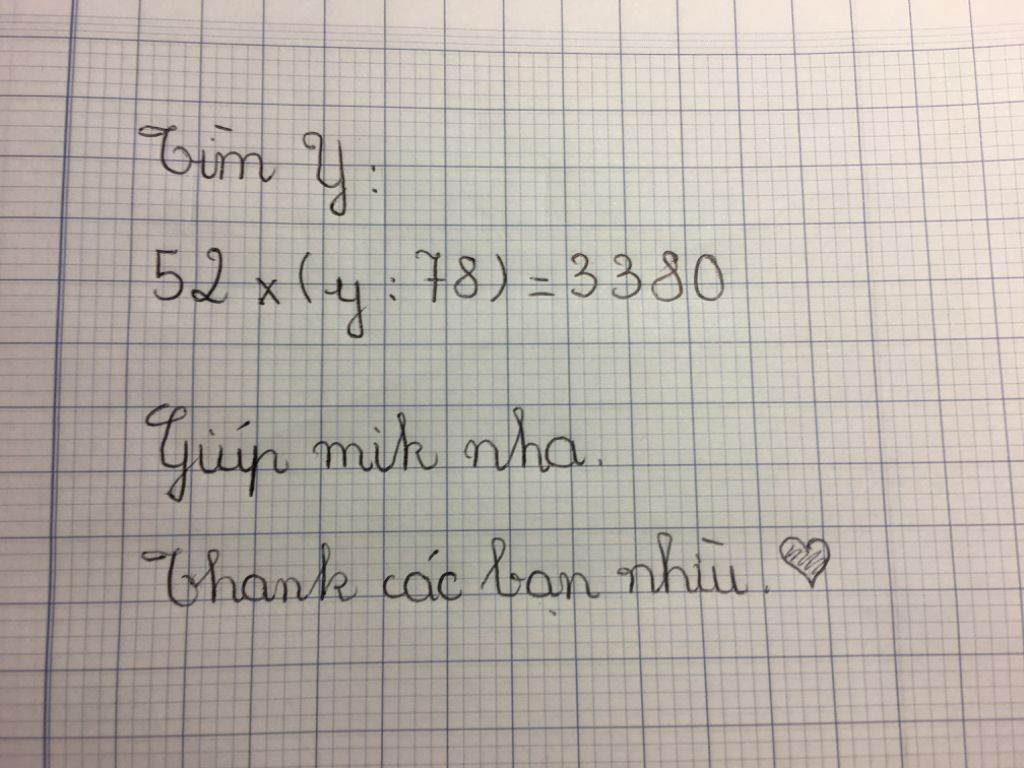 Tìm y:
52 x (y : 78) = 3380
Giúp mik nha.
Thank các bạn nhìu. ♥